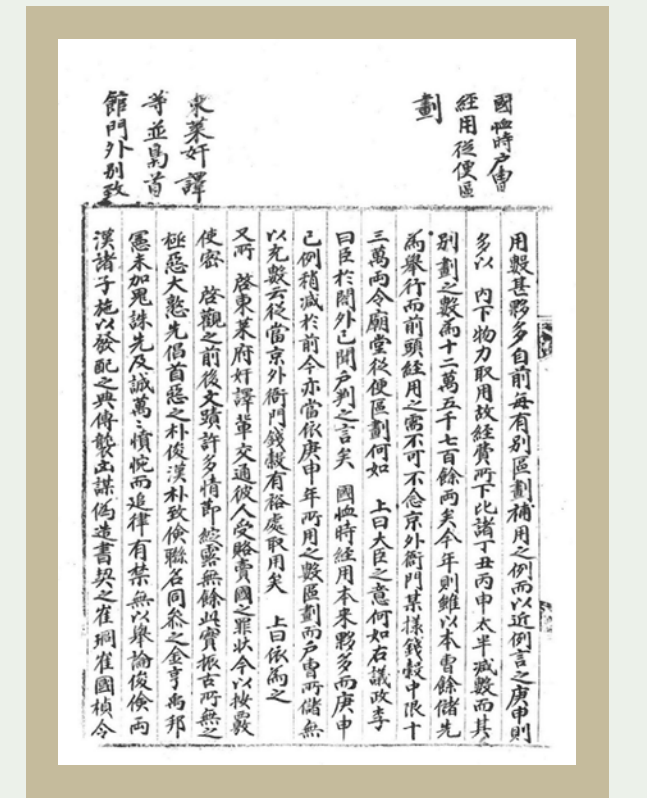 國恤時戶曹
經用從便區
劃
東萊奸譯
等並梟首
館門外別致
用數甚夥多自前每有別區劃補用之例而以近例言之庚申則
多以 內下物力取用故經費所下比諸丁丑丙申太半減數而其
別劃之數爲十二萬五千七百餘兩矣今年則雖以本曹餘儲先
爲舉行而前頭經用之需不可不念京外衙門某樣錢穀中限十
三萬兩令廟堂從便區劃何如 上曰大臣之意何如右議政李
曰臣於閤外已聞戶判之言矣 國恤時經用本來夥多而庚申
已例稍減於前今亦當依庚申年所用之數區劃而戶曹所儲無
以充數云從當京外衙門錢穀有裕處取用矣 上曰依爲之
又所 啓東萊府奸譯輩交通彼人受賂賣國之罪狀今以按覈
使密 啓觀之前後文蹟許多情節綻露無餘此實振古所無之
極惡大憝先倡首惡之朴俊漢朴致儉聯名同參之金亨禹邦
憲未加鬼誅先及誠萬〻憤惋而追律有禁無以舉論俊儉兩
漢諸子施以發配之典傳襲凶謀偽造書契之崔珛崔國楨令